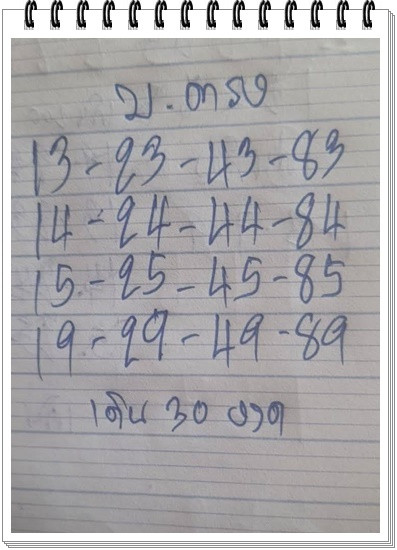 บ.ตรง
13-23-43-83
14-24-44-84
15-25-45-85
19-29-49-89
เดิน 30 งวด